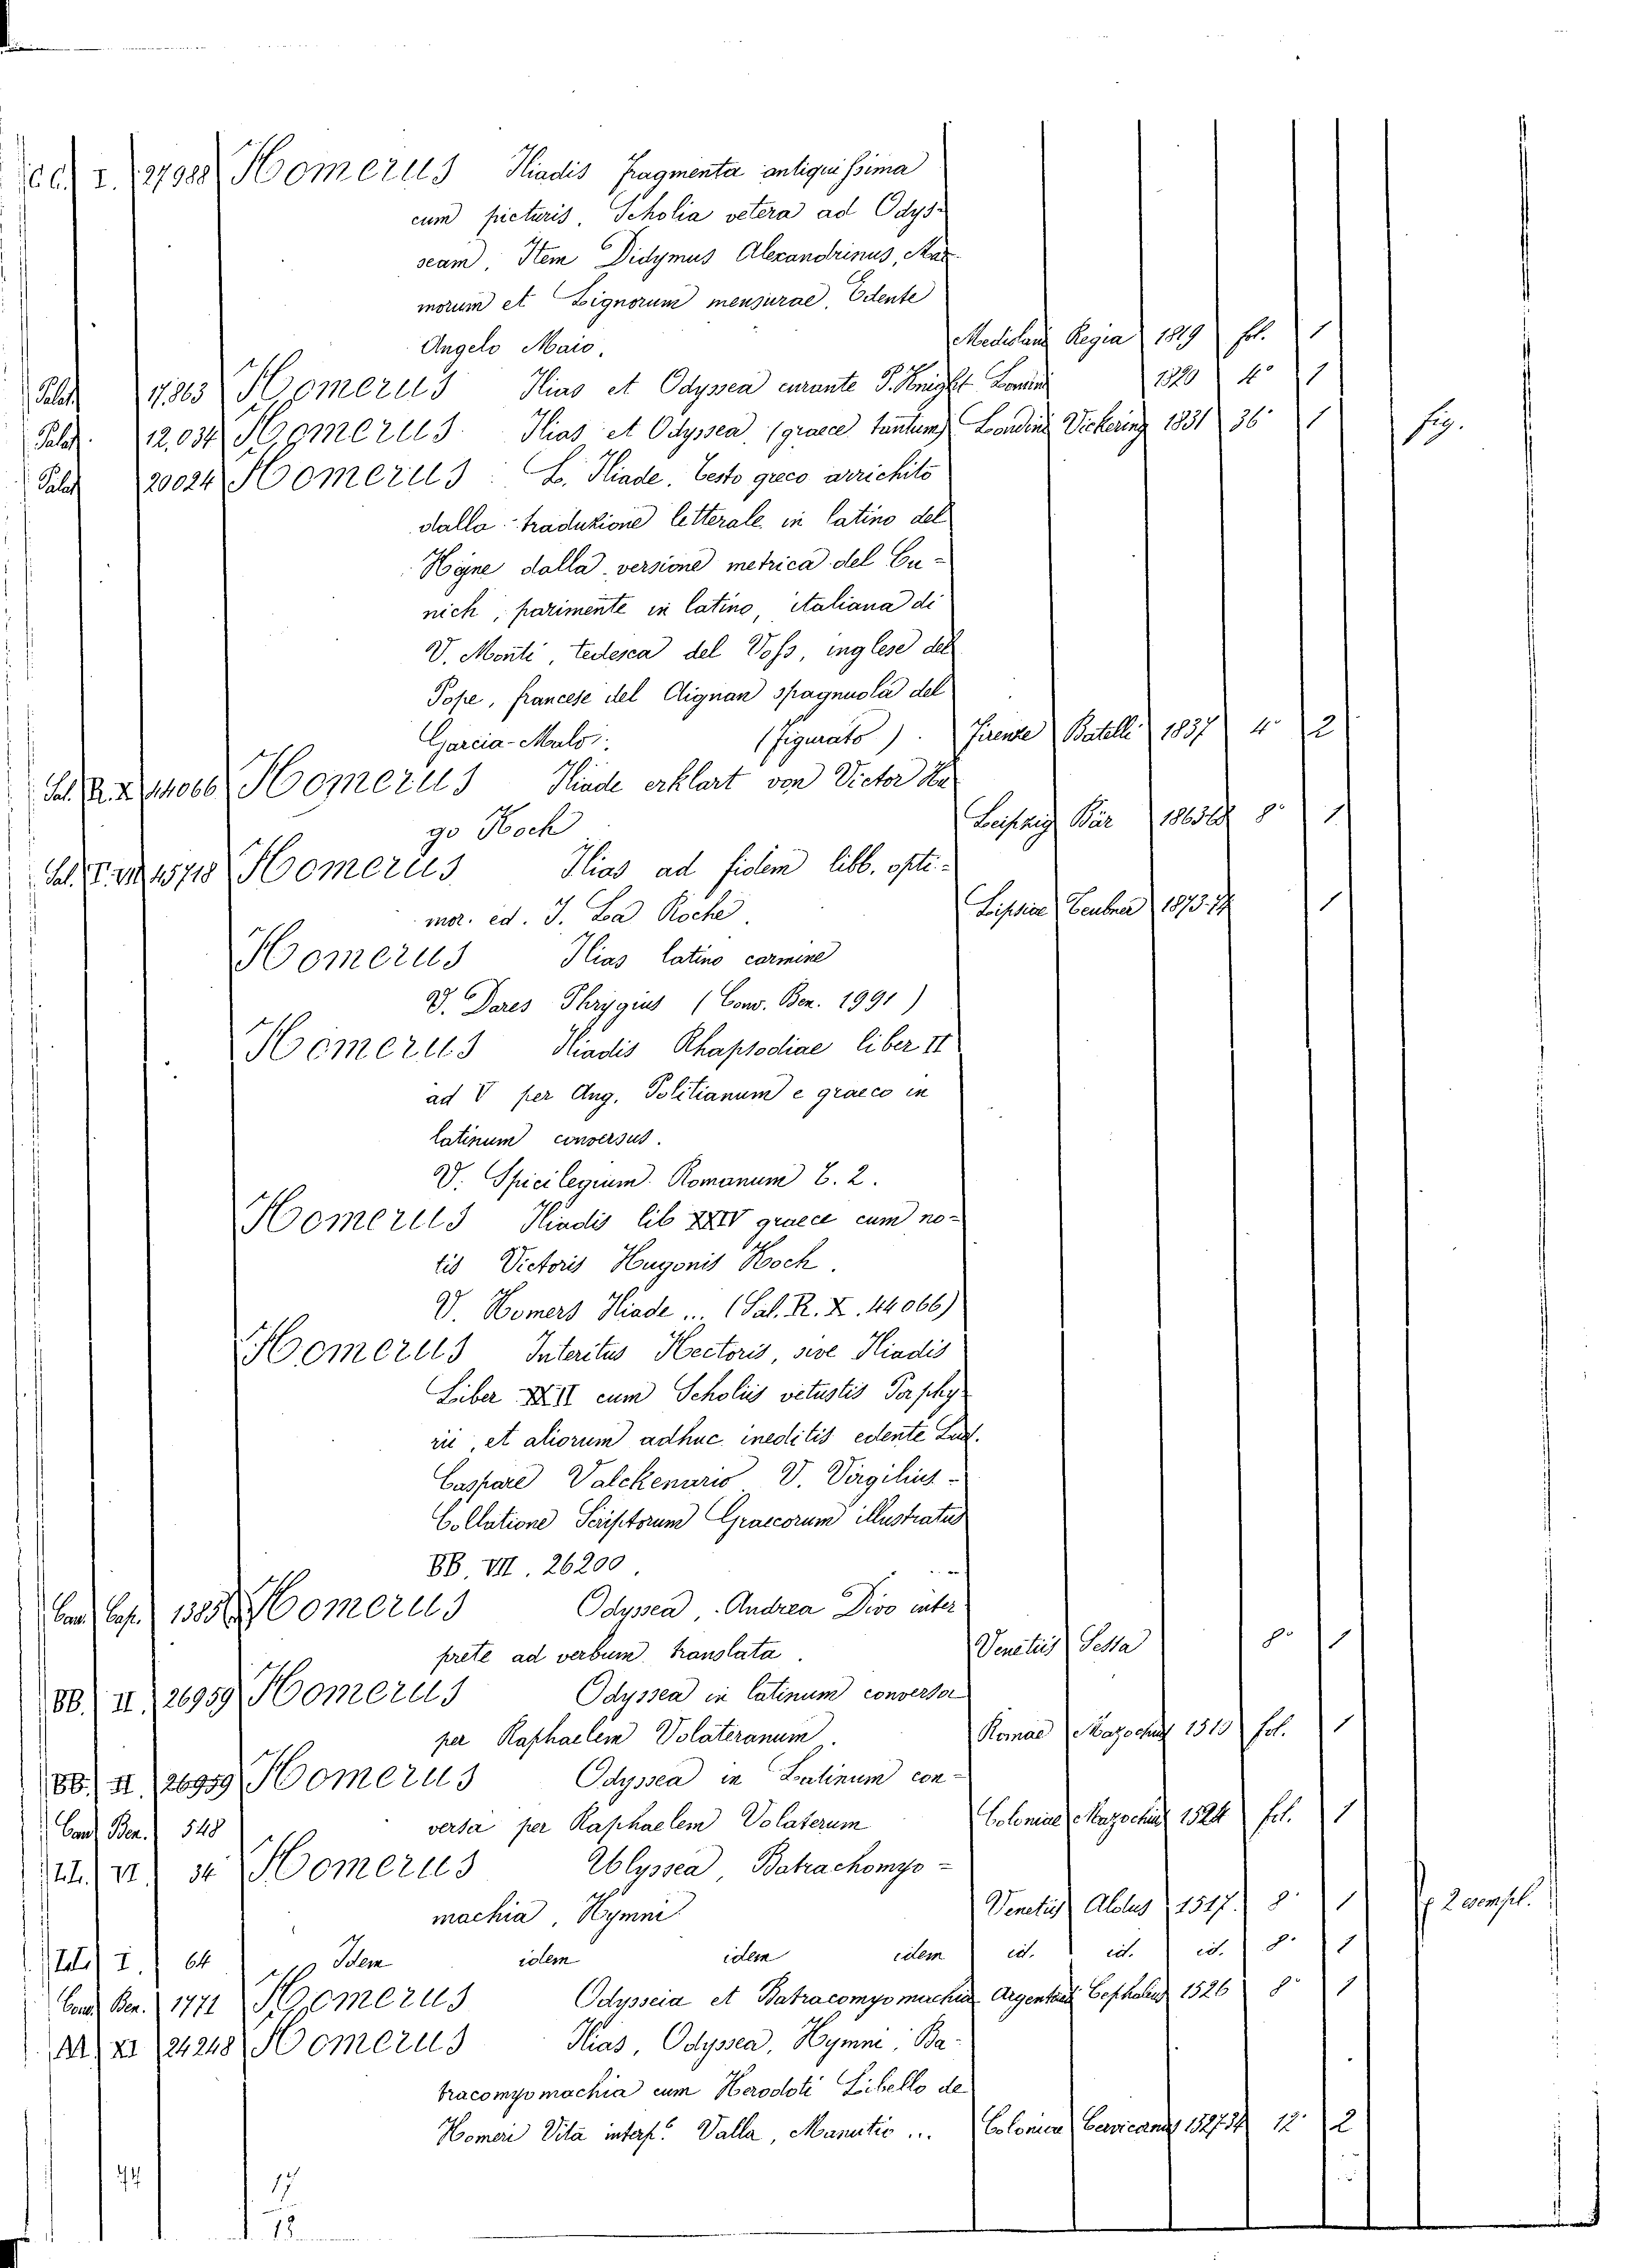 CC. I. 27988 Homerus Iliadis Fragmenta antiquissima
cum picturis. Scholia vetera ad Odys-
seam. Item Didymus Alexandrinus, Mar-
morum et Lignorum mensurae. Edente
Angelo Maio. Mediolani Regia 1819 fol. 1
Palat. 17.863 Homerus Ilias et Odyssea curante P. Knight Londini 1820 4° 1
Palat. 12.034 Homerus Ilias et Odyssea (graece tantum) Londini Vickering 1831 36° 1 fig.
Palat. 20024 Homerus: L. Iliade. Testo greco arrichito
dalla traduzione letterale in latino del
Heyne dalla versione metrica del Cu-
nich, parimente in latino, italiana di
V. Monti, tedesca del Voss, inglese del
Pope, francese del Aignan spagnuola del
Garcia-Malo. (Figurato). Firenze Batelli 1837 4° 2
Sal. R. X 44066 Homerus Iliade erklart von Victor Hu
go Koch Leipzig Bär 1863 8° 1
Sal. T. VII 45718 Homerus Ilias ad fidem libb. opti-
mor. ed. J. La Roche. Lipsiae Teubner 1873-74 1
Homerus Ilias latino carmine
V. Dares Phrygius (Conv. Ben. 1991)
Homerus Iliadis Rhapsodiae liber II
ad V per Ang. Politianum e graeco in
latinum conversus.
V. Spicilegium Romanum T. 2.
Homerus Iliadis lib XXIV graece cum no-
tis Victoris Hugonis Koch.
V. Homers Iliade... (Sal. R. X. 44066)
Homerus Interitus Hectoris, sive Iliadis
Liber XXII cum Scholiis vetustis Porphy
rii, et aliorum adhuc ineditis edente Lud.
Caspare Valckenario V. Virgilius-
Collatione Scriptorum Graecorum illustratus
BB. VII. 26200.
Can. Cap. 1385 Homerus Odyssea. Andrea Divo inter
prete ad verbum translata. Venetiis Sessa 8° 1
BB. II. 26959 Homerus Odyssea in latinum conversa
per Raphaelem Volateranum. Romae Mazochius 1510 fol. 1
BB. II. 26959 Homerus Odyssea in Latinum con-
Can. Ben. 548 versa per Raphaelem Volaterum Coloniae Mazochius 1524 fol. 1
VI. 34 Homerus Ulyssea, Batrachomyo-
machia, Hymni Venetiis Aldus 1517. 8° 1 2 esempl.
I. 64 Idem idem idem idem id. id. id. 8° 1
Conv. Ben. 1771 Homerus Odysseia et Batracomyomachia Argentinae Cephaleus 1526 8° 1
XI 24248 Homerus Ilias, Odyssea, Hymni, Ba-
tracomyomachia cum Herodoti Libello de
Homeri Vita interp. Valla, Manutio... Coloniae Cervicanus 1527 34 12° 2
44 17
18